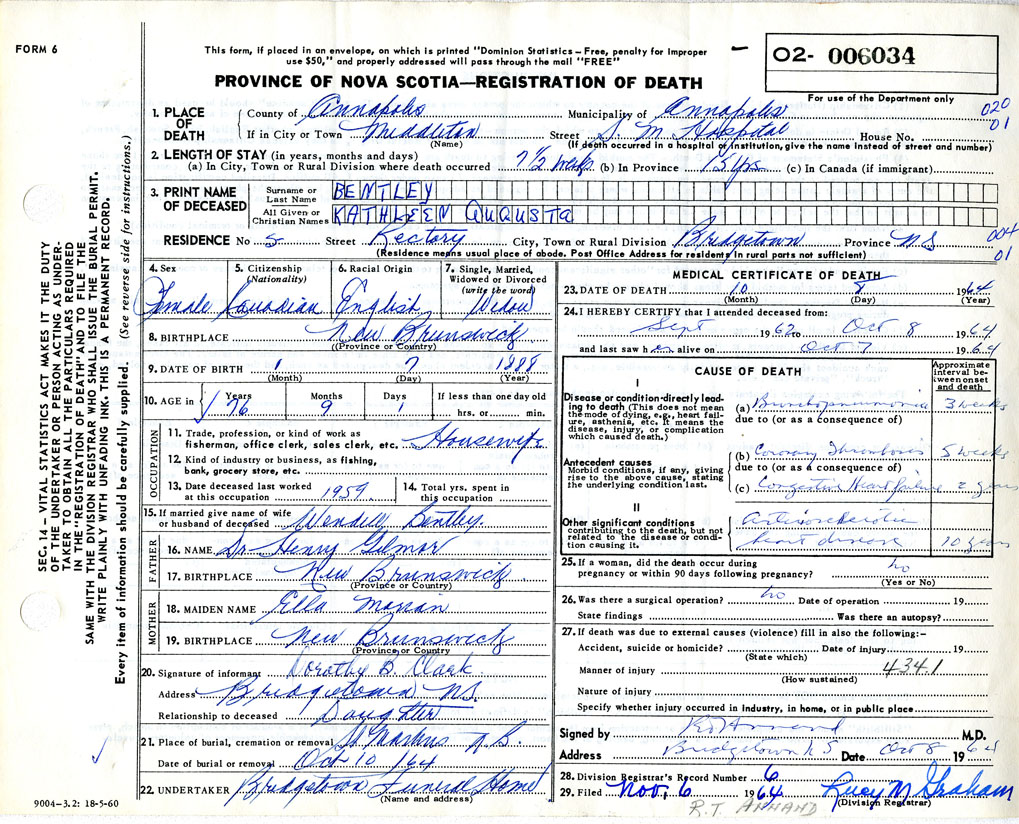 FORM 6
This form, if placed in an envelope, on which is printed "Dominion Statistics – Free, penalty for improper
use $50," and properly addressed will pass through the mail "FREE"
PROVINCE OF NOVA SCOTIA—REGISTRATION OF DEATH
02- 006034
For use of the Department only
SEC. 14 – VITAL STATISTICS ACT MAKES IT THE DUTY
OF THE UNDERTAKER OR PERSON ACTING AS UNDER-
TAKER TO OBTAIN ALL THE PARTICULARS REQUIRED
IN THE "REGISTRATION OF DEATH" AND TO FILE THE
SAME WITH THE DIVISION REGISTRAR WHO SHALL ISSUE THE BURIAL PERMIT.
WRITE PLAINLY WITH UNFADING INK. THIS IS A PERMANENT RECORD.
Every item of information should be carefully supplied. (See reverse side for instructions.)
1. PLACE OF DEATH
County of Annapolis Municipality of Annapolis 020
If in City or Town Middleton Street S. M. Hospital House No. 01
(Name) (If death occurred in a hospital or institution, give the name instead of street and number)
2. LENGTH OF STAY (in years, months and days)
(a) In City, Town or Rural Division where death occurred 7 1/2 weeks (b) In Province 15 yrs. (c) In Canada (if immigrant)
3. PRINT NAME OF DECEASED
Surname or Last Name BENTLEY
All Given or Christian Names KATHLEEN AUGUSTA
RESIDENCE No 5 Street Rectory City, Town or Rural Division Bridgetown Province N.S 004
(Residence means usual place of abode. Post Office Address for residents in rural parts not sufficient) 01
4. Sex 5. Citizenship (Nationality) 6. Racial Origin 7. Single, Married, Widowed or Divorced (write the word)
Female Canadian English Widow
8. BIRTHPLACE New Brunswick
(Province or Country)
9. DATE OF BIRTH 1 7 1888
(Month) (Day) (Year)
10. AGE in Years Months Days If less than one day old
76 9 1 hrs. or min.
OCCUPATION
11. Trade, profession, or kind of work as
fisherman, office clerk, sales clerk, etc. Housewife
12. Kind of industry or business, as fishing,
bank, grocery store, etc.
13. Date deceased last worked
at this occupation 1959
14. Total yrs. spent in
this occupation
15. If married give name of wife
or husband of deceased Wendell Bentley.
FATHER
16. NAME Dr Henry Gilmor
17. BIRTHPLACE New Brunswick
(Province or Country)
MOTHER
18. MAIDEN NAME Ella Marian
19. BIRTHPLACE New Brunswick
(Province or Country)
20. Signature of informant Dorothy B. Clark
Address Bridgetown N.S.
Relationship to deceased Daughter
21. Place of burial, cremation or removal St N.B.
Date of burial or removal Oct 10 /64
22. UNDERTAKER Bridgetown Funeral Home
(Name and address)
9004–3.2: 18-5-60
MEDICAL CERTIFICATE OF DEATH
23. DATE OF DEATH 10 8 1964
(Month) (Day) (Year)
24. I HEREBY CERTIFY that I attended deceased from:
Sept 1962 to Oct 8 1964
and last saw her alive on Oct 7 1964
CAUSE OF DEATH
Approximate interval between onset and death
I
Disease or condition directly lead-
ing to death (This does not mean
the mode of dying, e.g., heart fail-
ure, asthenia, etc. It means the
disease, injury, or complication
which caused death.)
(a) Bronchopneumonia 3 weeks
due to (or as a consequence of)
Antecedent causes
Morbid conditions, if any, giving
rise to the above cause, stating
the underlying condition last.
(b) Coronary Thrombosis 5 weeks
due to (or as a consequence of)
(c) Congestive Heart failure 2 years
II
Other significant conditions
contributing to the death, but not
related to the disease or condi-
tion causing it.
Arteriosclerotic
heart disease 10 years
25. If a woman, did the death occur during
pregnancy or within 90 days following pregnancy? no
(Yes or No)
26. Was there a surgical operation? no Date of operation 19
State findings Was there an autopsy?
27. If death was due to external causes (violence) fill in also the following:–
Accident, suicide or homicide? Date of injury 19
(State which)
Manner of injury 4341
(How sustained)
Nature of injury
Specify whether injury occurred in industry, in home, or in public place
Signed by R.T. Annand M.D.
Address Bridgetown N S Date Oct 8 1964
28. Division Registrar's Record Number 6
29. Filed Nov. 6 1964 Lucy M Graham
(Division Registrar)
R.T. ANNAND